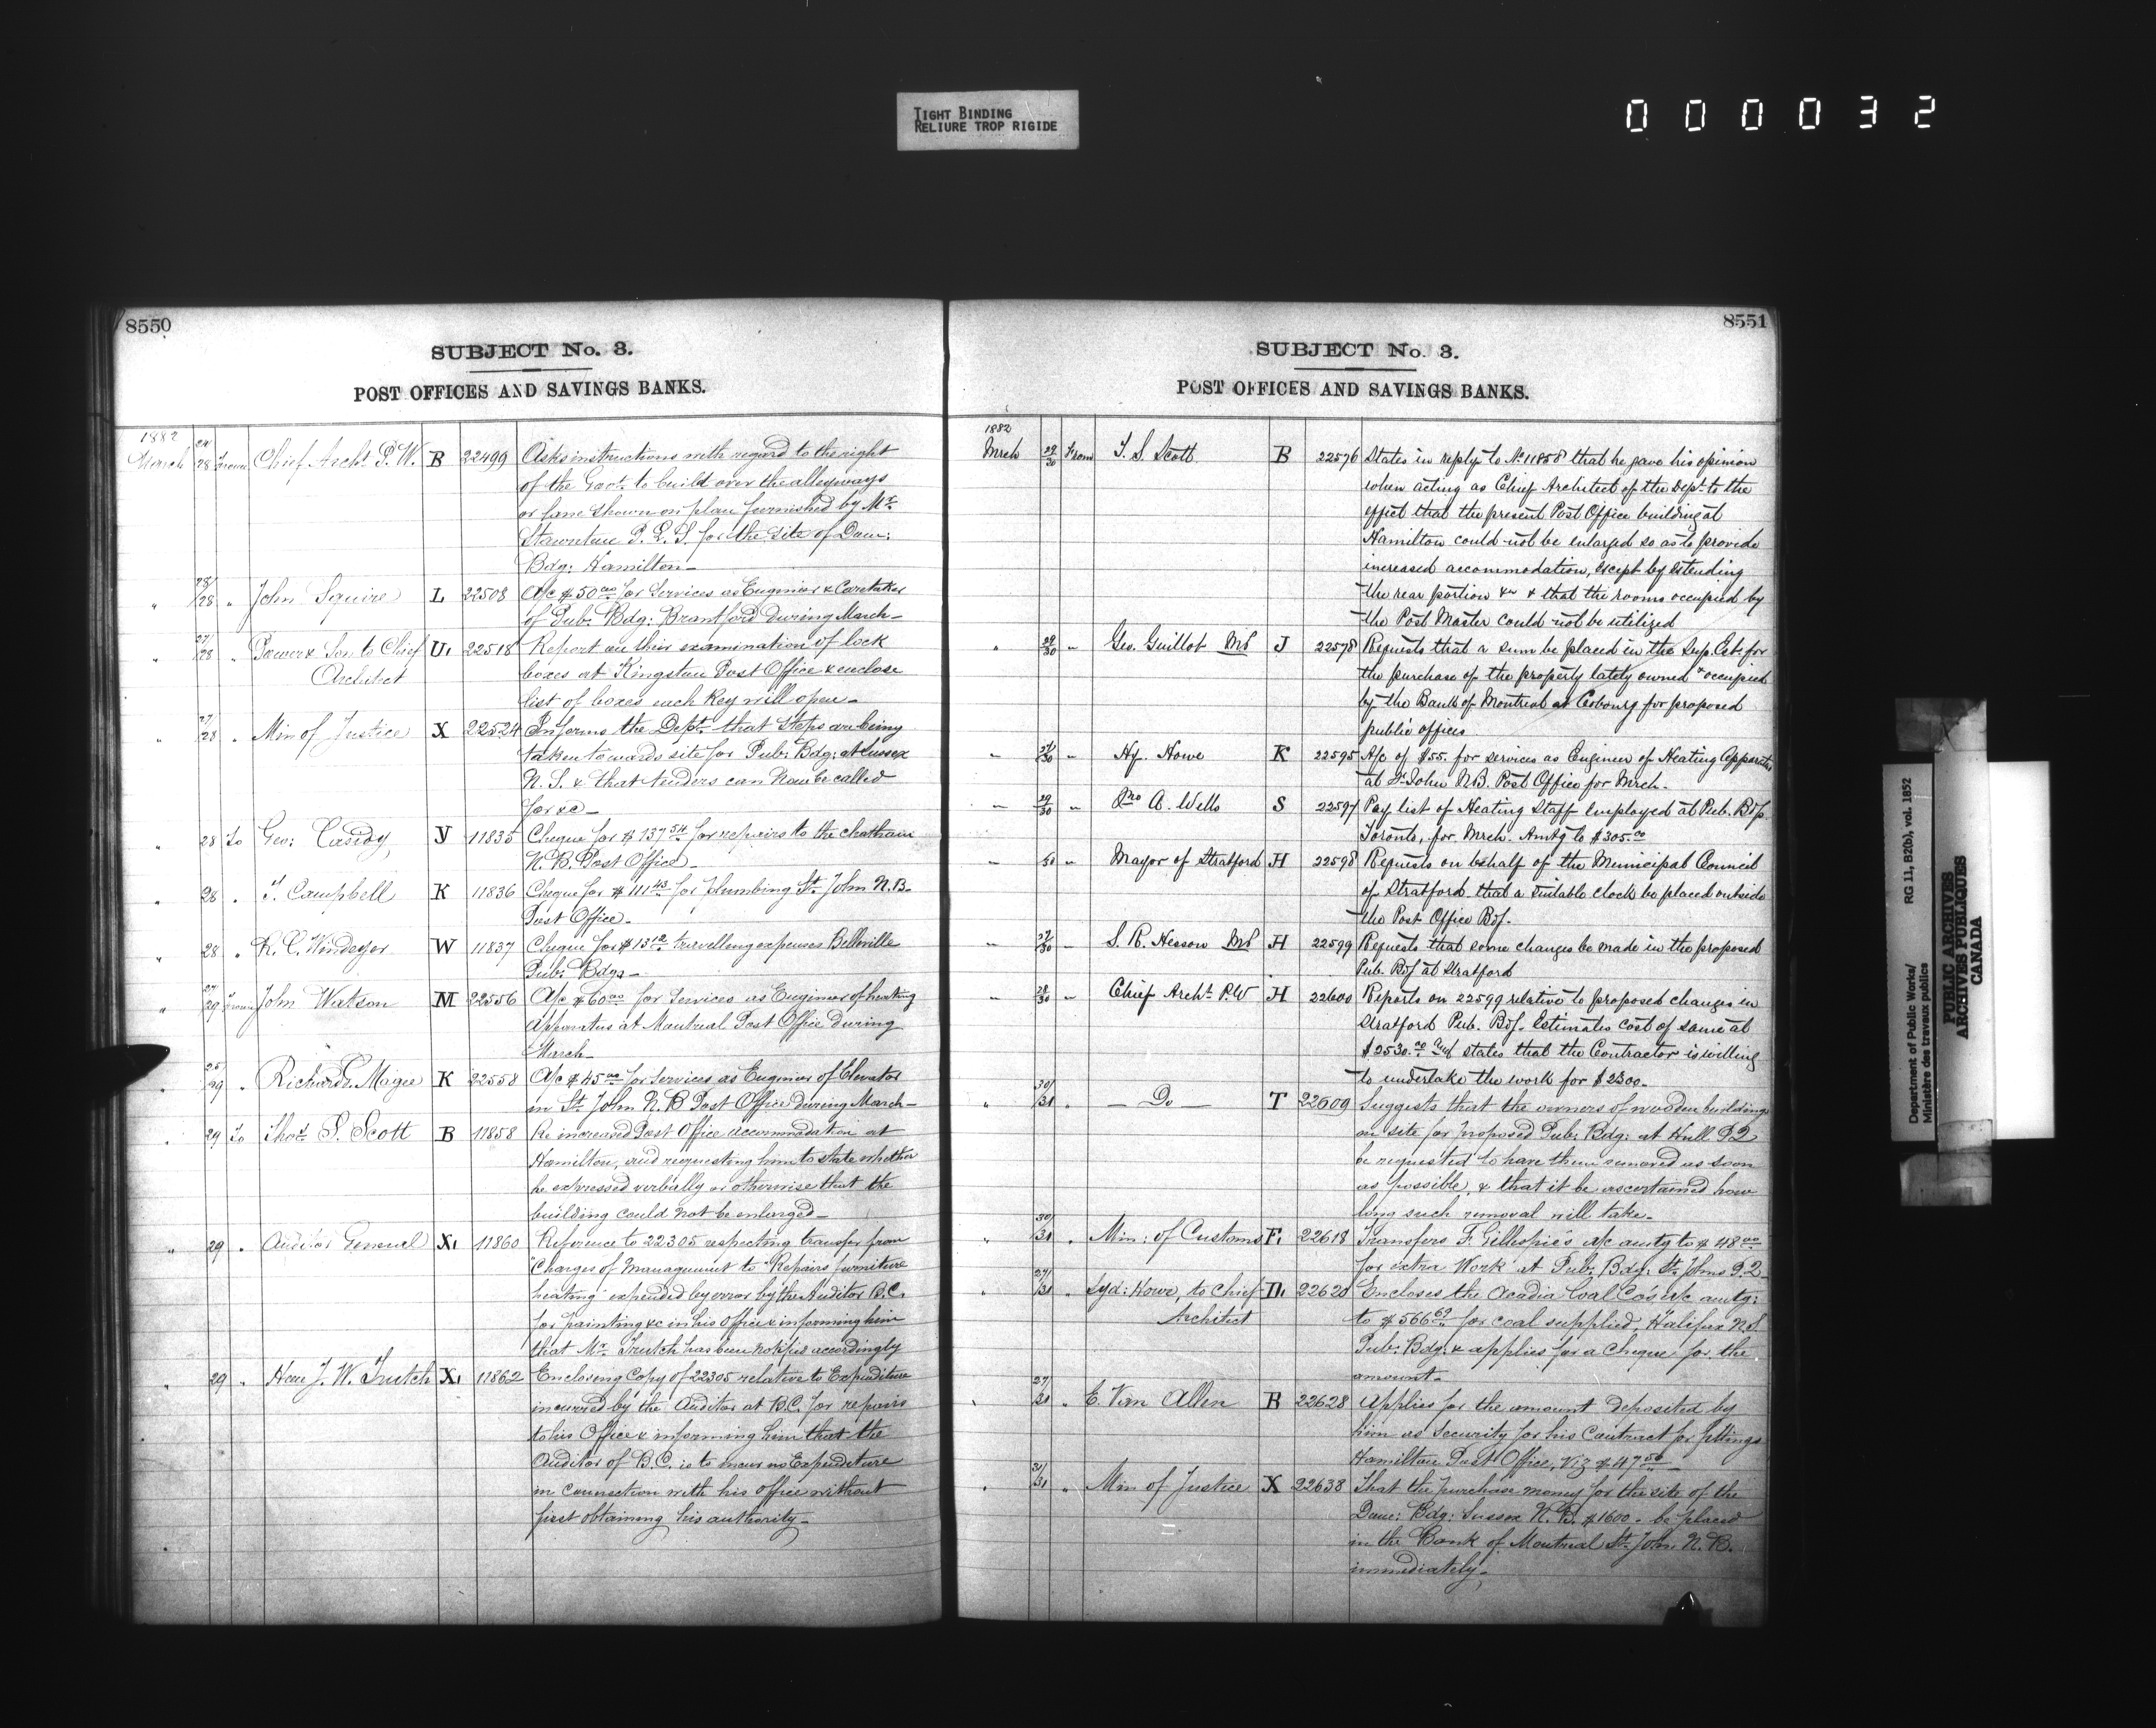 TIGHT BINDING
RELIURE TROP RIGIDE
000032
8550
SUBJECT No. 3.
POST OFFICES AND SAVINGS BANKS.
1882
March 28 From Chief Archt P.W. B 22499 Asks instructions with regard to the right
of the Govt. to build over the alleyways
or lane shown on plan furnished by Mr.
P. L. S. for the site of Dom:
Bdg: Hamilton—
" 28/28 " John Squire L 22508 A/c $50.00 for Services as Engineer & Caretaker
of Pub: Bdg: Brantford during March—
" 27/28 " Power & Son to Chief U1 22518 Report on their examination of lock
Architect boxes at Kingston Post Office & enclose
list of boxes each Key will open—
" 27/28 " Min of Justice X 22524 Informs the Dept. that steps are being
taken towards site for Pub: Bdg: at Sussex
N. S. & that tenders can now be called
for &c—
" 28 To Geo: Casidy Y 11835 Cheque for $137.54 for repairs to the Chatham
N. B. Post Office—
" 28 " T. Campbell K 11836 Cheque for $111.43 for plumbing St. John N.B.
Post Office—
" 28 " R. C. Windeyer W 11837 Cheque for $13.12 travelling expenses Belleville
Pub: Bdgs—
" 27/29 From John Watson M 22556 A/c $60.00 for Services as Engineer of heating
apparatus at Montreal Post Office during
March—
" 25/29 " Richard Magee K 22558 A/c $45.00 for Services as Engineer of Elevator
in St. John N. B Post Office during March—
" 29 To Thos. S. Scott B 11858 Re increased Post Office accommodation at
Hamilton, and requesting him to state whether
he expressed verbally or otherwise that the
building could not be enlarged—
" 29 " Auditor General X1 11860 Reference to 22305 respecting transfer from
"Charges of Management to "Repairs furniture
heating" expended by error by the Auditor B.C.
for painting &c in his Office & informing him
that Mr. Trutch has been notified accordingly
" 29 " Hon J. W. Trutch X1 11862 Enclosing Copy of 22305 relative to Expenditure
incurred by the Auditor at B.C. for repairs
to his Office & informing him that the
Auditor of B.C. is to incur no Expenditure
in connection with his office without
first obtaining his authority—
8551
SUBJECT No. 3.
POST OFFICES AND SAVINGS BANKS.
1882
Mrch 29/30 From T. S. Scott B 22576 States in reply to No 11858 that he gave his opinion
when acting as Chief Architect of the Dept. to the
effect that the present Post Office building at
Hamilton could not be enlarged so as to provide
increased accommodation, except by extending
the rear portion &c & that the rooms occupied by
the Post Master could not be utilized
" 29/30 " Geo. Guillot MP J 22578 Requests that a sum be placed in the Sup. Ests for
the purchase of the property lately owned & occupied
by the Bank of Montreal at Cobourg for proposed
public offices
" 30 " Hy. Howe K 22595 A/c of $55. for services as Engineer of Heating Apparatus
at St. John NB. Post Office for Mrch.
" 29/30 " Jno A. Wells S 22597 Pay list of Heating Staff employed at Pub. Bdg.
Toronto, for Mrch. Amtg to $305.00
" 30 " Mayor of Stratford H 22598 Requests on behalf of the Municipal Council
of Stratford that a suitable clock be placed outside
the Post Office Bdg.
" 30 " S. R. Hesson MP H 22599 Requests that some changes be made in the proposed
Pub. Bdg at Stratford
" 28/30 " Chief Archt. P.W H 22600 Reports on 22599 relative to proposed changes in
Stratford Pub. Bdg. Estimates cost of same at
$2530.00 and states that the Contractor is willing
to undertake the work for $2300.
" 30/31 " — Do — T 22609 Suggests that the owners of wooden buildings
on site for proposed Pub: Bdg: at Hull P.Q
be requested to have them removed as soon
as possible, & that it be ascertained how
long such removal will take—
" 30/31 " Min: of Customs F1 22618 Transfers F. Gillespie's a/c amtg to $48.00
for extra Work at Pub: Bdg: St. Johns P.Q—
" 27/31 " Syd: Howe, to Chief D1 22620 Encloses the Acadia Coal Co's a/c amtg:
Architect to $566.69 for coal supplied, Halifax N.S.
Pub: Bdg: & applies for a Cheque for the
amount—
" 27/30 " E. Van Allen B 22628 Applies for the amount deposited by
him as Security for his Contract for fittings
Hamilton Post Office, Viz $47.50—
" 31/31 " Min of Justice X 22638 That the purchase money for the site of the
Dom: Bdg: Sussex N.B. $1600. be placed
in the Bank of Montreal St. John N. B.
immediately—
Department of Public Works/ RG 11, B2(b), vol. 1852
Ministère des travaux publics
PUBLIC ARCHIVES
ARCHIVES PUBLIQUES
CANADA